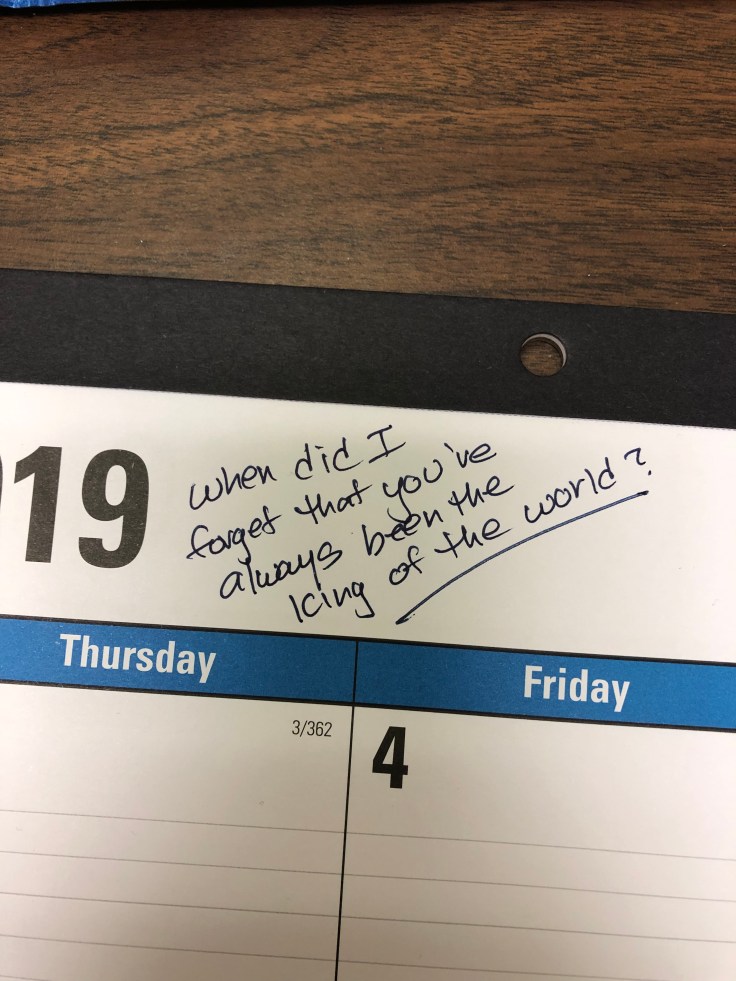 19
when did I
forget that you've
always been the
king of the world?
Thursday Friday
3/362 4